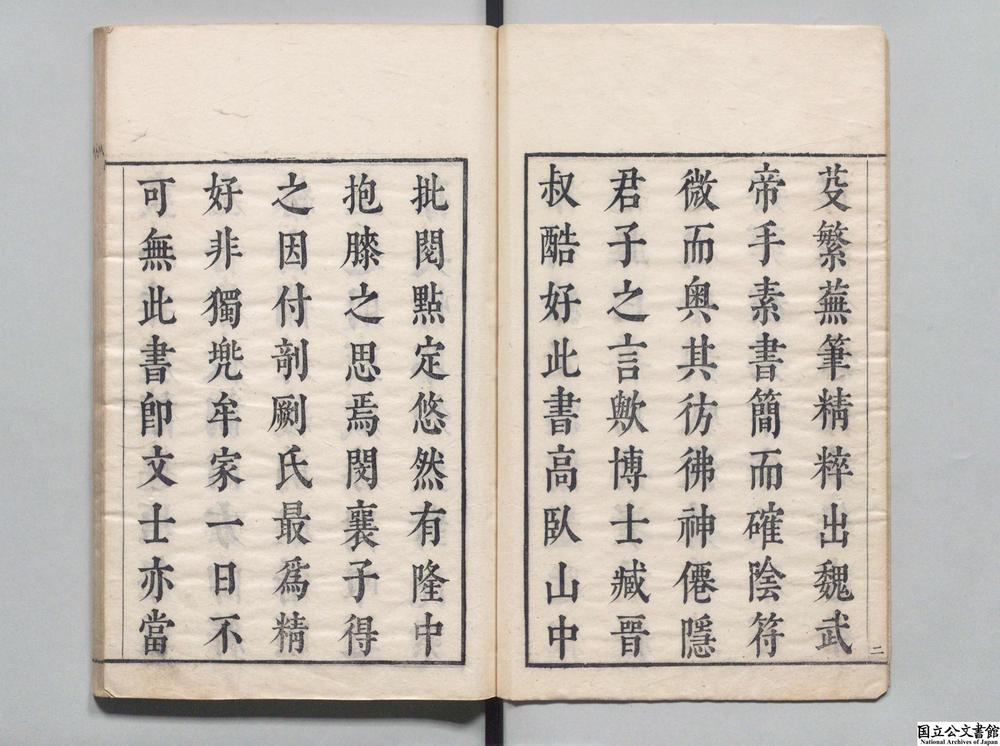 芟繁蕪筆精粹出魏武
帝手素書簡而確陰符
微而奥其彷彿神僊隱
君子之言歟博士臧晋
叔酷好此書高臥山中
二
批閱點定悠然有隆中
抱膝之思焉閔襄子得
之因付剞劂氏最爲精
好非獨兜牟家一日不
可無此書卽文士亦當
国立公文書館
National Archives of Japan